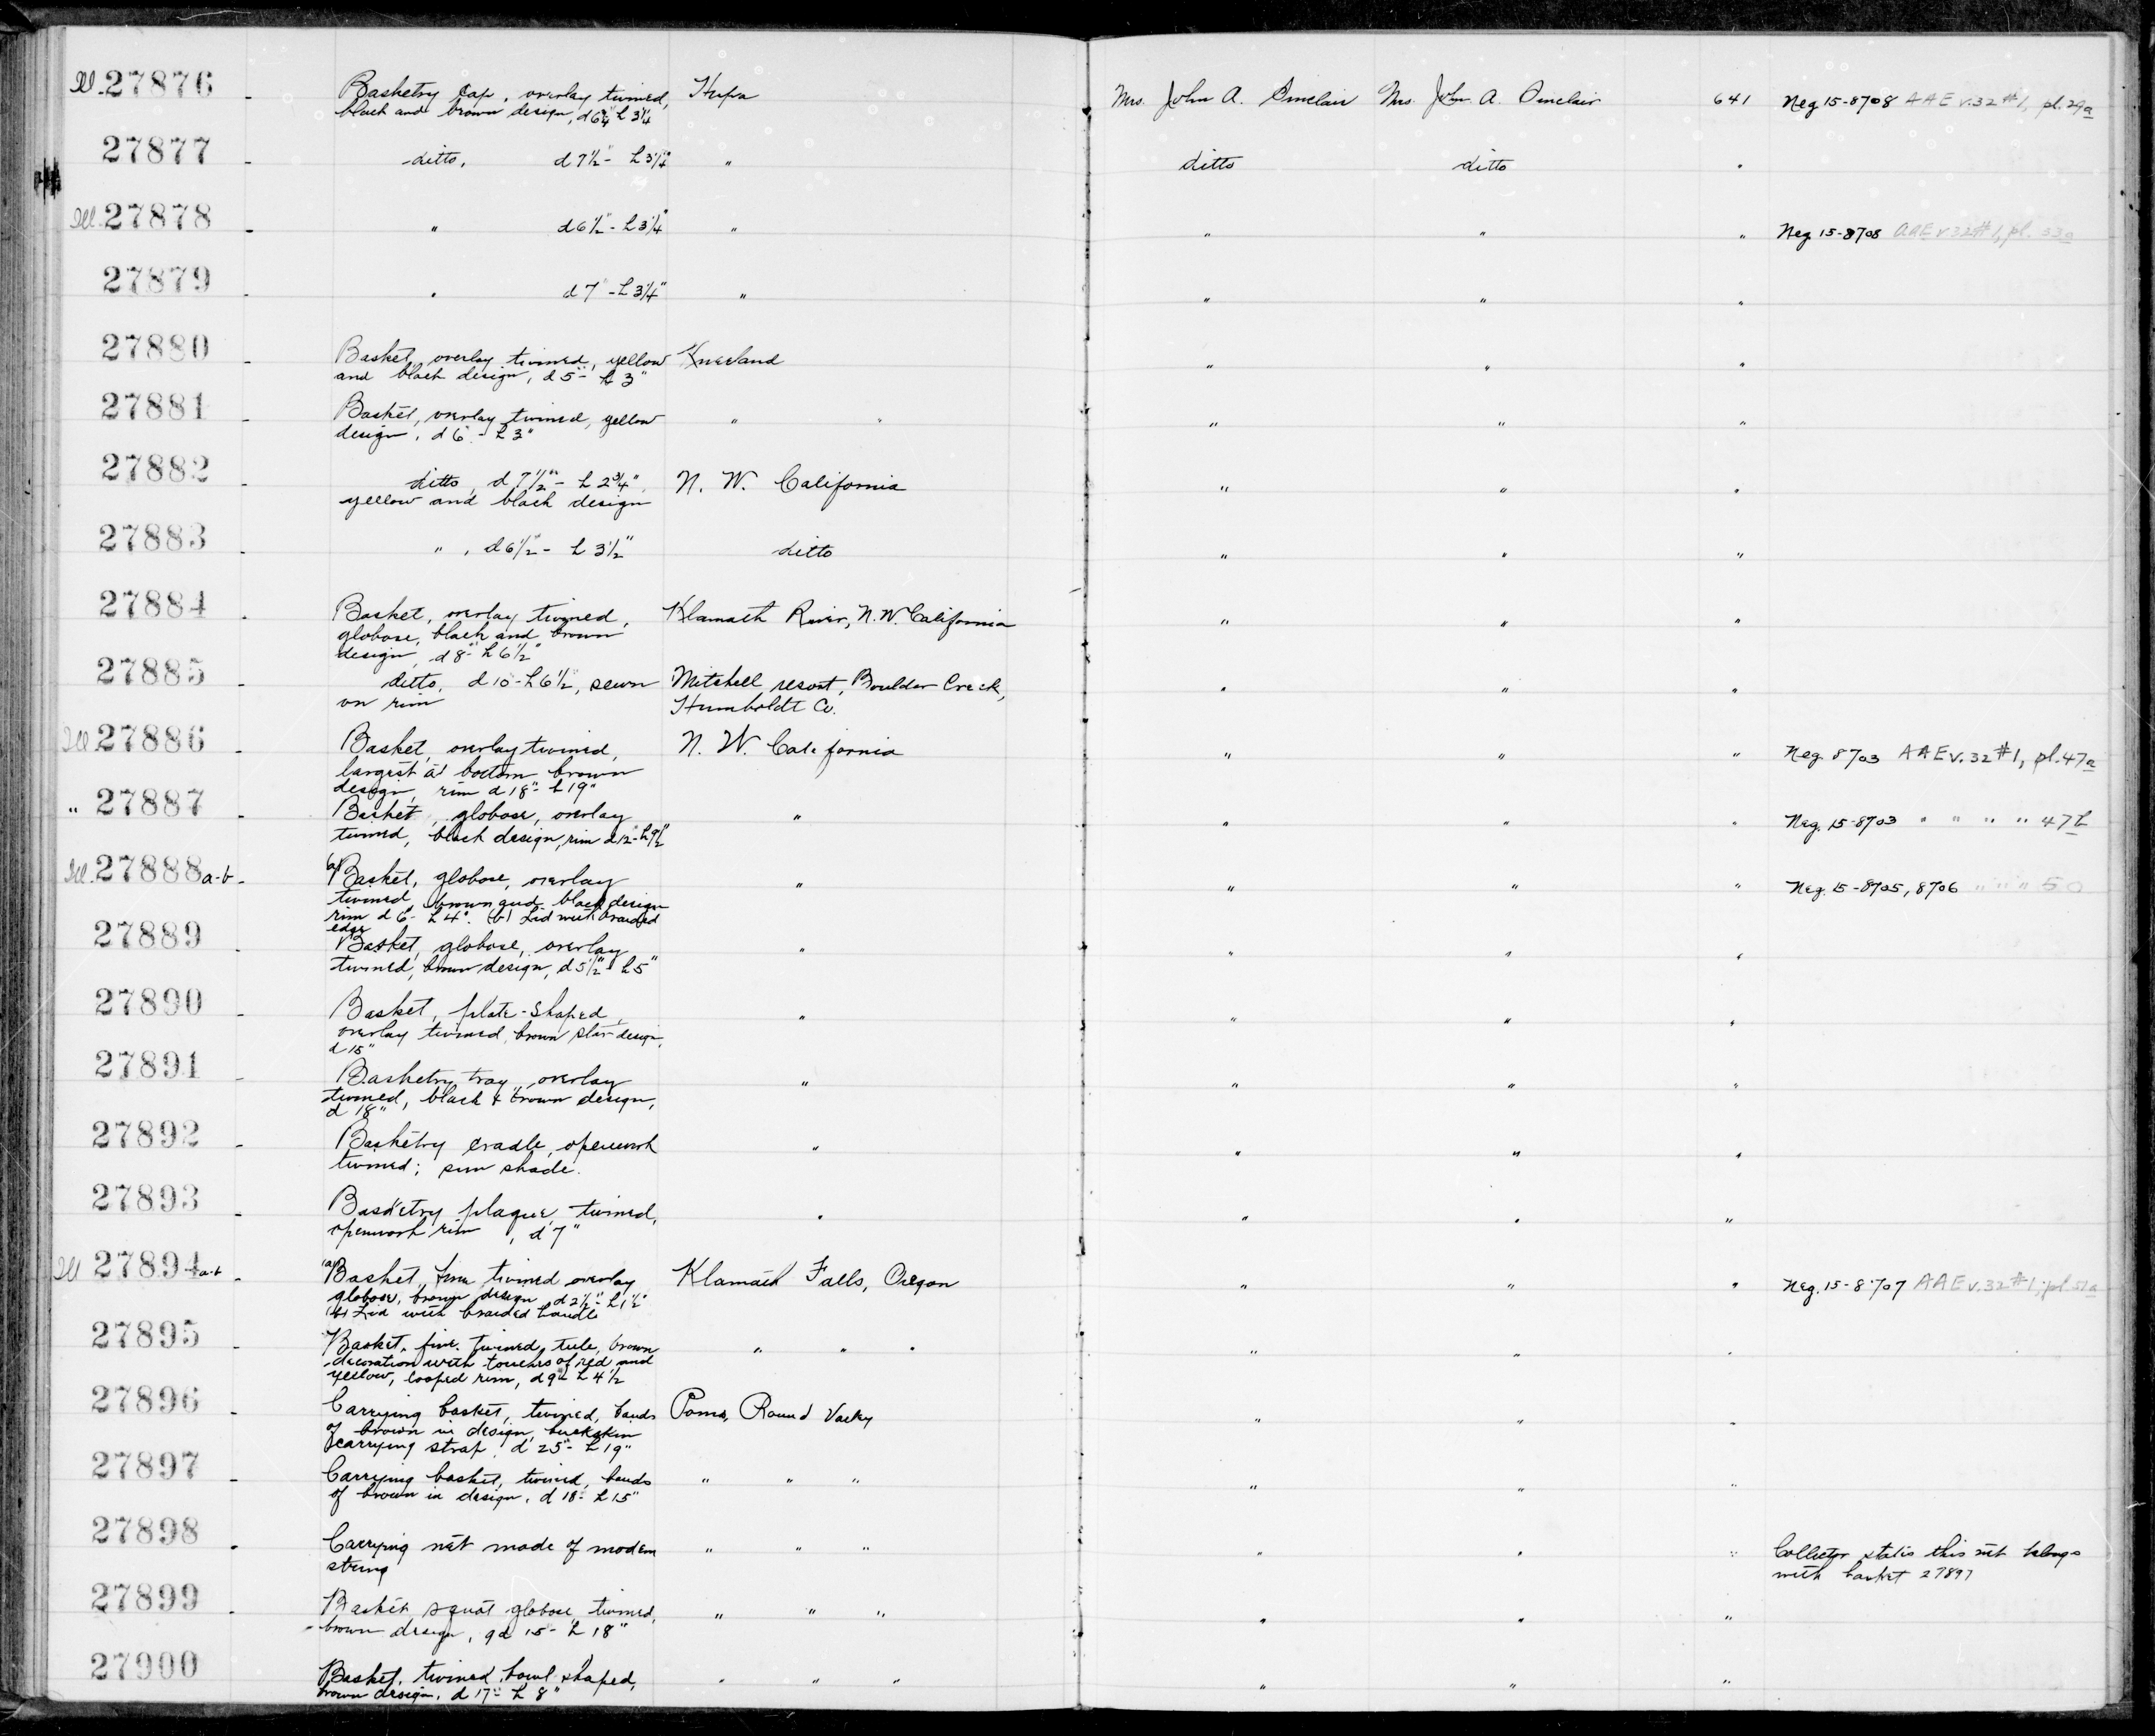 Ill. 27876 - Basketry cap, overlay twined, Hupa Mrs. John A. Sinclair Mrs. John A. Sinclair 641 Neg 15-8708 AAE v.32 #1, pl.29a
black and brown design, d 6¾" h 3¼"
27877 - ditto, d 7½" - h 3¼" " ditto ditto "
Ill. 27878 - " d 6½" - h 3¼" " " " " Neg. 15-8708 AAE v 32 #1, pl. 33a
27879 - " d 7" - h 3¼" " " " "
27880 - Basket, overlay twined, yellow Kneeland " " "
and black design, d 5" - h 3"
27881 - Basket, overlay twined, yellow " " " " "
design, d 6" - h 3"
27882 - ditto, d 7½" - h 2¾", N. W. California " " "
yellow and black design
27883 - " , d 6½" - h 3½" ditto " " "
27884 - Basket, overlay twined, Klamath River, N.W. California " " "
globose, black and brown
design, d 8" - h 6½"
27885 - ditto, d 10" - h 6½", sewn Mitchell resort, Boulder Creek, " " "
on rim Humboldt Co.
Ill. 27886 - Basket, overlay twined, N. W. California " " " Neg. 8703 AAE v. 32 #1, pl. 47a
largest at bottom brown
design, rim d 18" - h 19"
" 27887 - Basket, globose, overlay " " " " Neg. 15-8703 " " " " 47b
twined, black design, rim d 12" - h 9½"
Ill. 27888 a-b - (a) Basket, globose, overlay " " " " Neg. 15-8705, 8706 " " " 50
twined, brown and black design
rim d 6" - h 4". (b) Lid with braided
edge
27889 - Basket, globose, overlay " " " "
twined, brown design, d 5½" - h 5"
27890 - Basket, plate-shaped, " " " "
overlay twined, brown star design,
d 15"
27891 - Basketry tray, overlay " " " "
twined, black & brown design,
d 18"
27892 - Basketry cradle, openwork " " " "
twined; sun shade.
27893 - Basketry plaque, twined, " " " "
openwork rim, d 7"
Ill 27894 a-b - (a) Basket, fine twined overlay Klamath Falls, Oregon " " " Neg. 15-8707 AAE v. 32 #1, pl 51a
globose, brown design d 2½" - h 1½"
(b) Lid with braided handle
27895 - Basket, fine twined, tule, brown " " " " " "
decoration with touches of red and
yellow, looped rim, d 9" - h 4½
27896 - Carrying basket, twined, bands Pomo, Round Valley " " "
of brown in design, buckskin
carrying strap, d 25" - h 19"
27897 - Carrying basket, twined, bands " " " " " "
of brown in design, d 18" - h 15"
27898 - Carrying net made of modern " " " " " " Collector states this net belongs
string with basket 27897
27899 - Basket, squat globose twined, " " " " " "
brown design, d 15" - h 18"
27900 Basket, twined, bowl shaped, " " " " " "
brown design, d 17" - h 8"